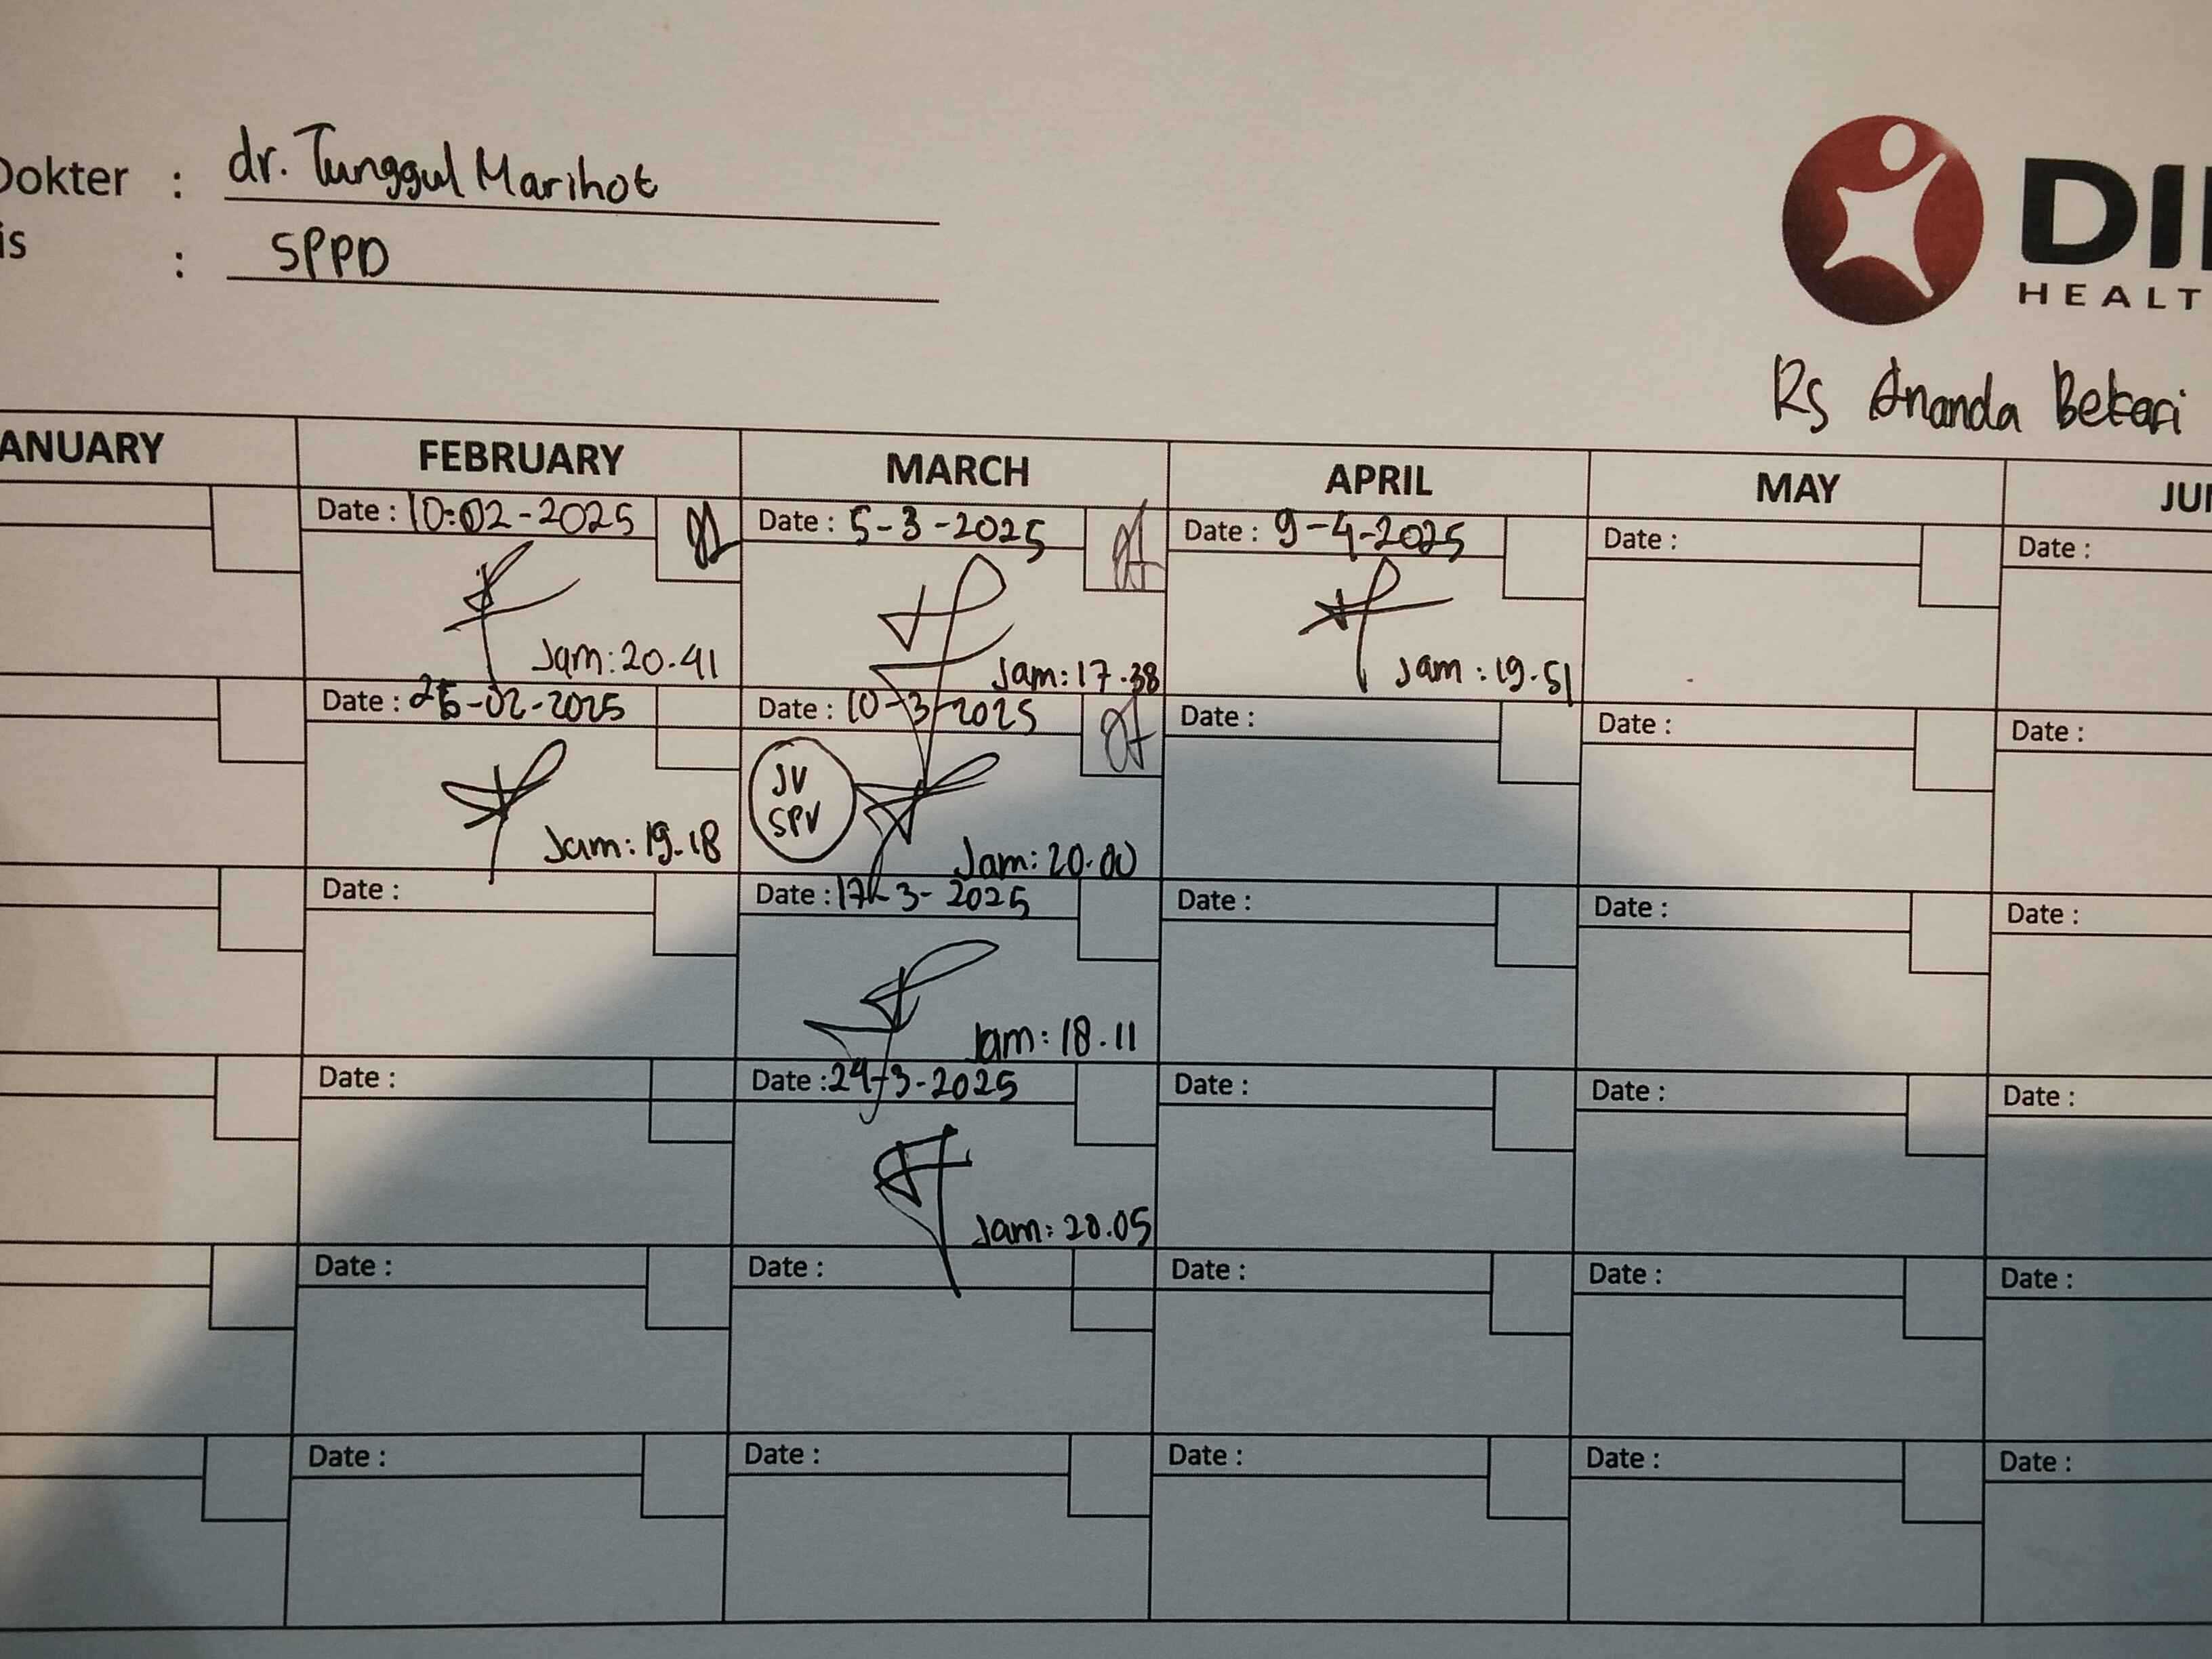 Dokter : dr. Tunggul Marihot
is : SPPD
DI
HEALT
RS Ananda Bekasi
ANUARY FEBRUARY MARCH APRIL MAY JU
Date : 10-02-2025 Date : 5-3-2025 Date : 9-4-2025 Date : Date :
Jam: 20.41 Jam: 17.38 Jam : 19.51
Date : 25-02-2025 Date : 10-3-2025 Date : Date : Date :
JV
SPV
Jam: 19.18 Jam: 20.00
Date : Date : 17-3-2025 Date : Date : Date :
Jam: 18.11
Date : Date : 24-3-2025 Date : Date : Date :
Jam: 20.05
Date : Date : Date : Date : Date :
Date : Date : Date : Date : Date :